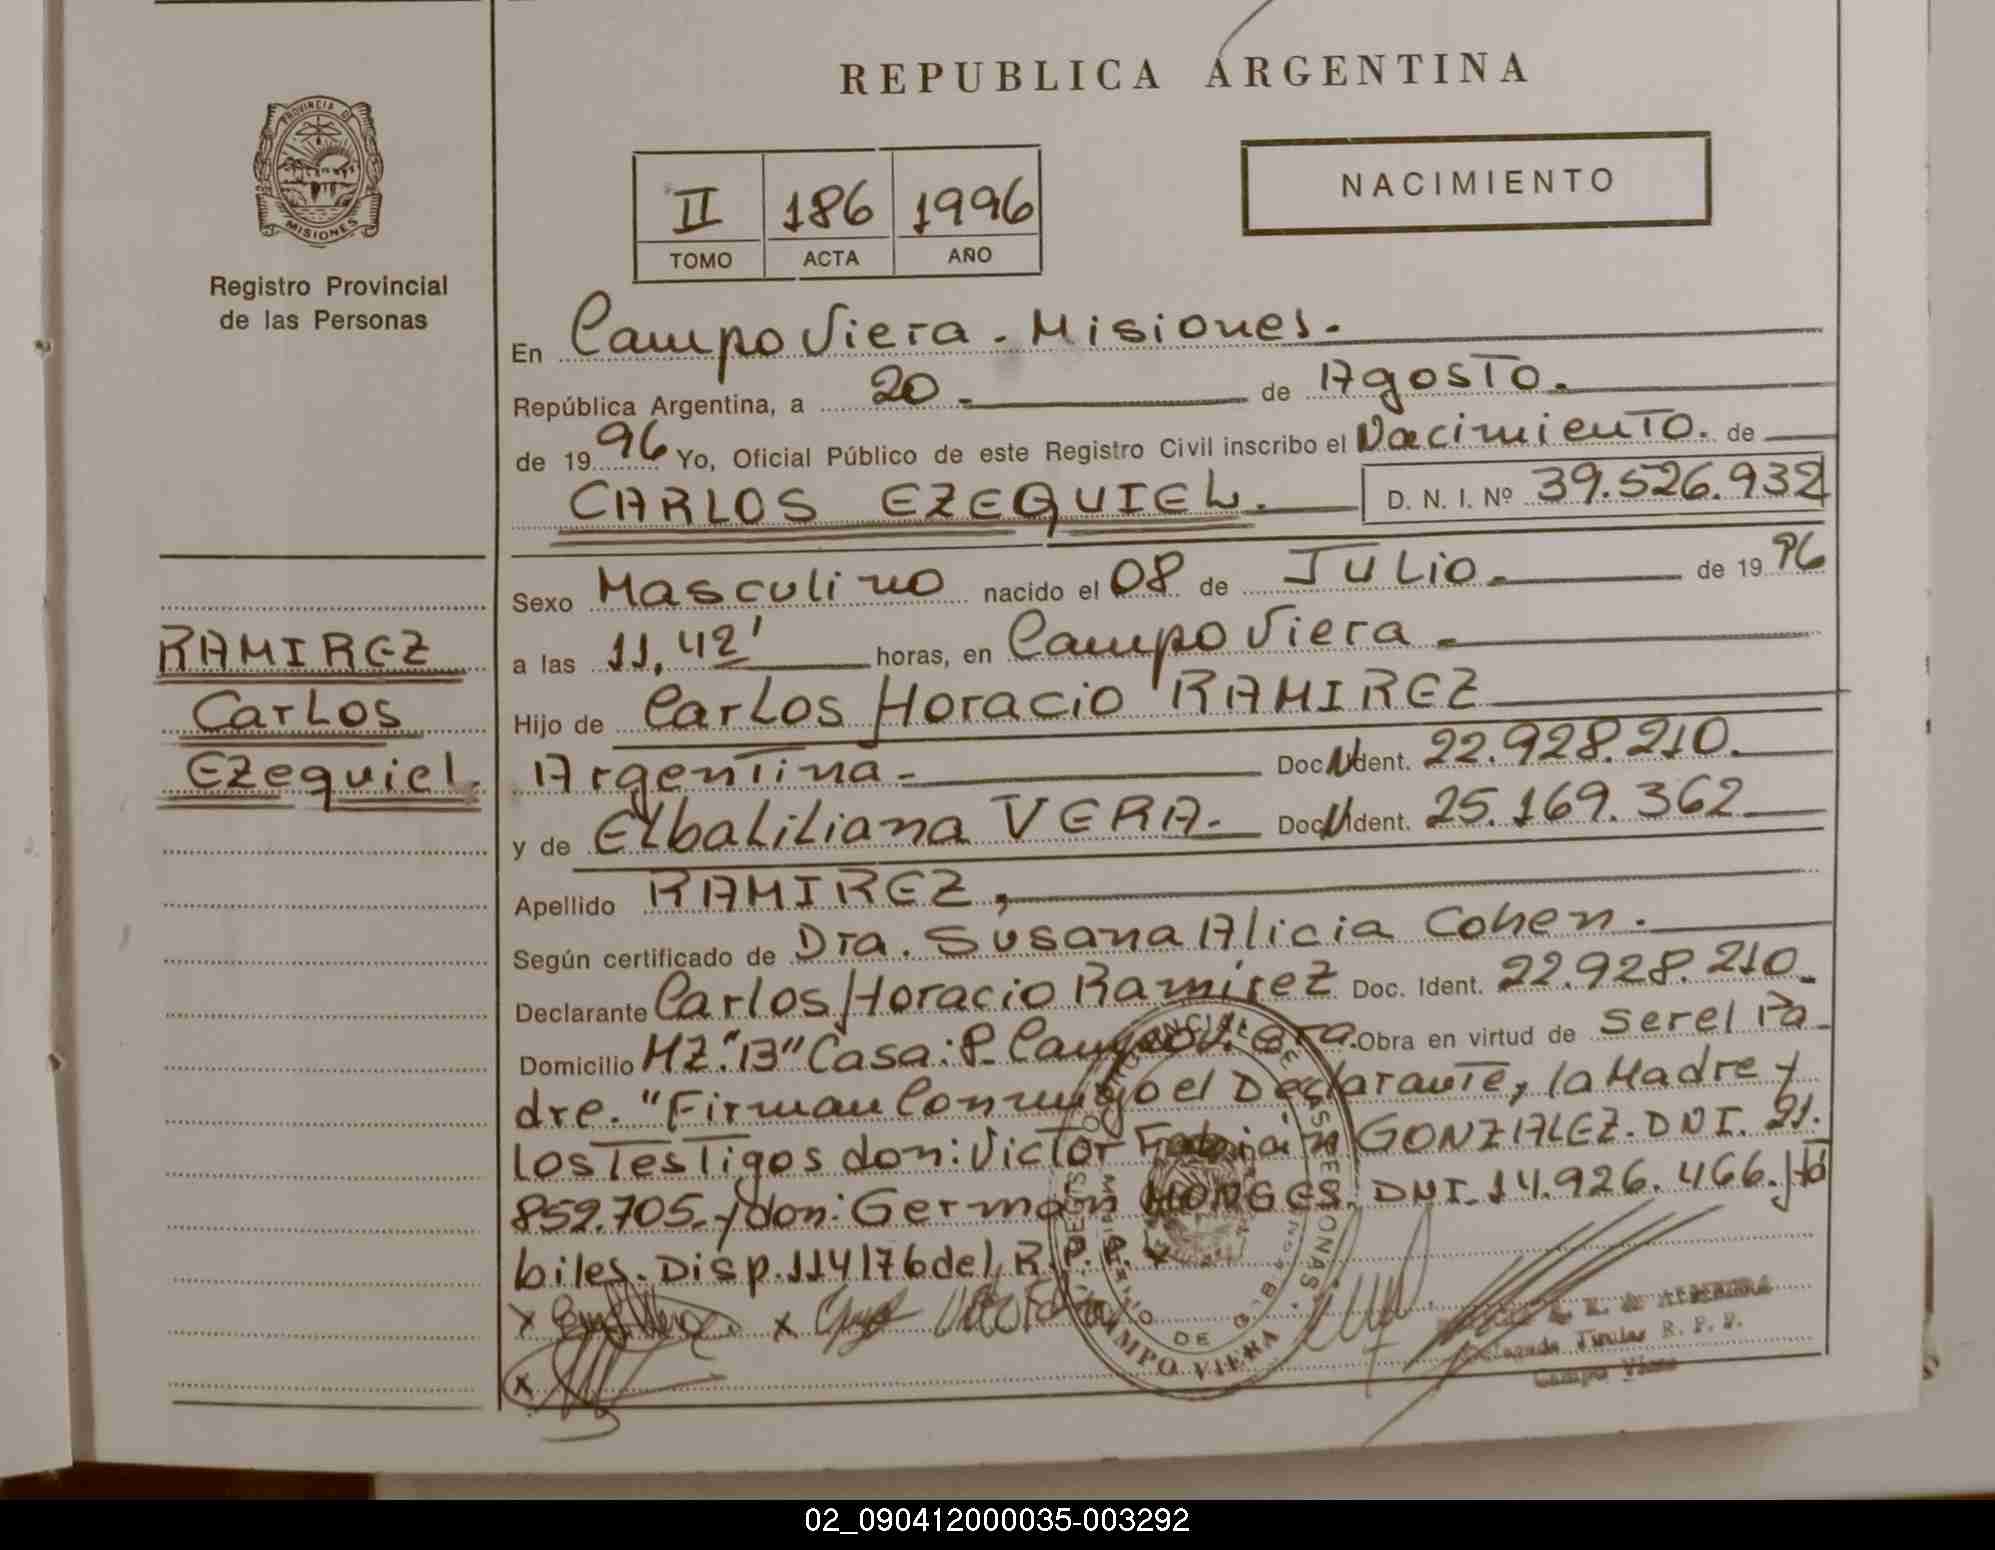 REPUBLICA ARGENTINA
PROVINCIA D
MISIONES
Registro Provincial
de las Personas
II 186 1996
TOMO ACTA AÑO
NACIMIENTO
En Campo Viera - Misiones.
República Argentina, a 20 - de Agosto.
de 1996 Yo, Oficial Público de este Registro Civil inscribo el Nacimiento. de
CARLOS EZEQUIEL. D. N. I. Nº 39.526.932
Sexo Masculino nacido el 08 de JULio. de 1996
a las 11,42' horas, en Campo Viera -
Hijo de Carlos Horacio RAMIREZ
Argentina - Doc. Ident. 22.928.210.
y de Elba Liliana VERA. Doc. Ident. 25.169.362
Apellido RAMIREZ,
Según certificado de Dra. Susana Alicia Cohen.
Declarante Carlos Horacio Ramirez Doc. Ident. 22.928.210.
Domicilio MZ."13" Casa: 8- Campo Viera. Obra en virtud de ser el Pa
dre. "Firman Conmigo el Declarante, la Madre y
los Testigos don: Victor Fabián GONZALEZ. DNI. 21.
852.705.- y don: German MONGES. DNI. 14.926.466. Há
biles. Disp. 114/76 del R.P.P.
RAMIREZ
Carlos
Ezequiel.
CAMPO VIERA
Titular R. P. P.
Campo Viera
02_090412000035-003292